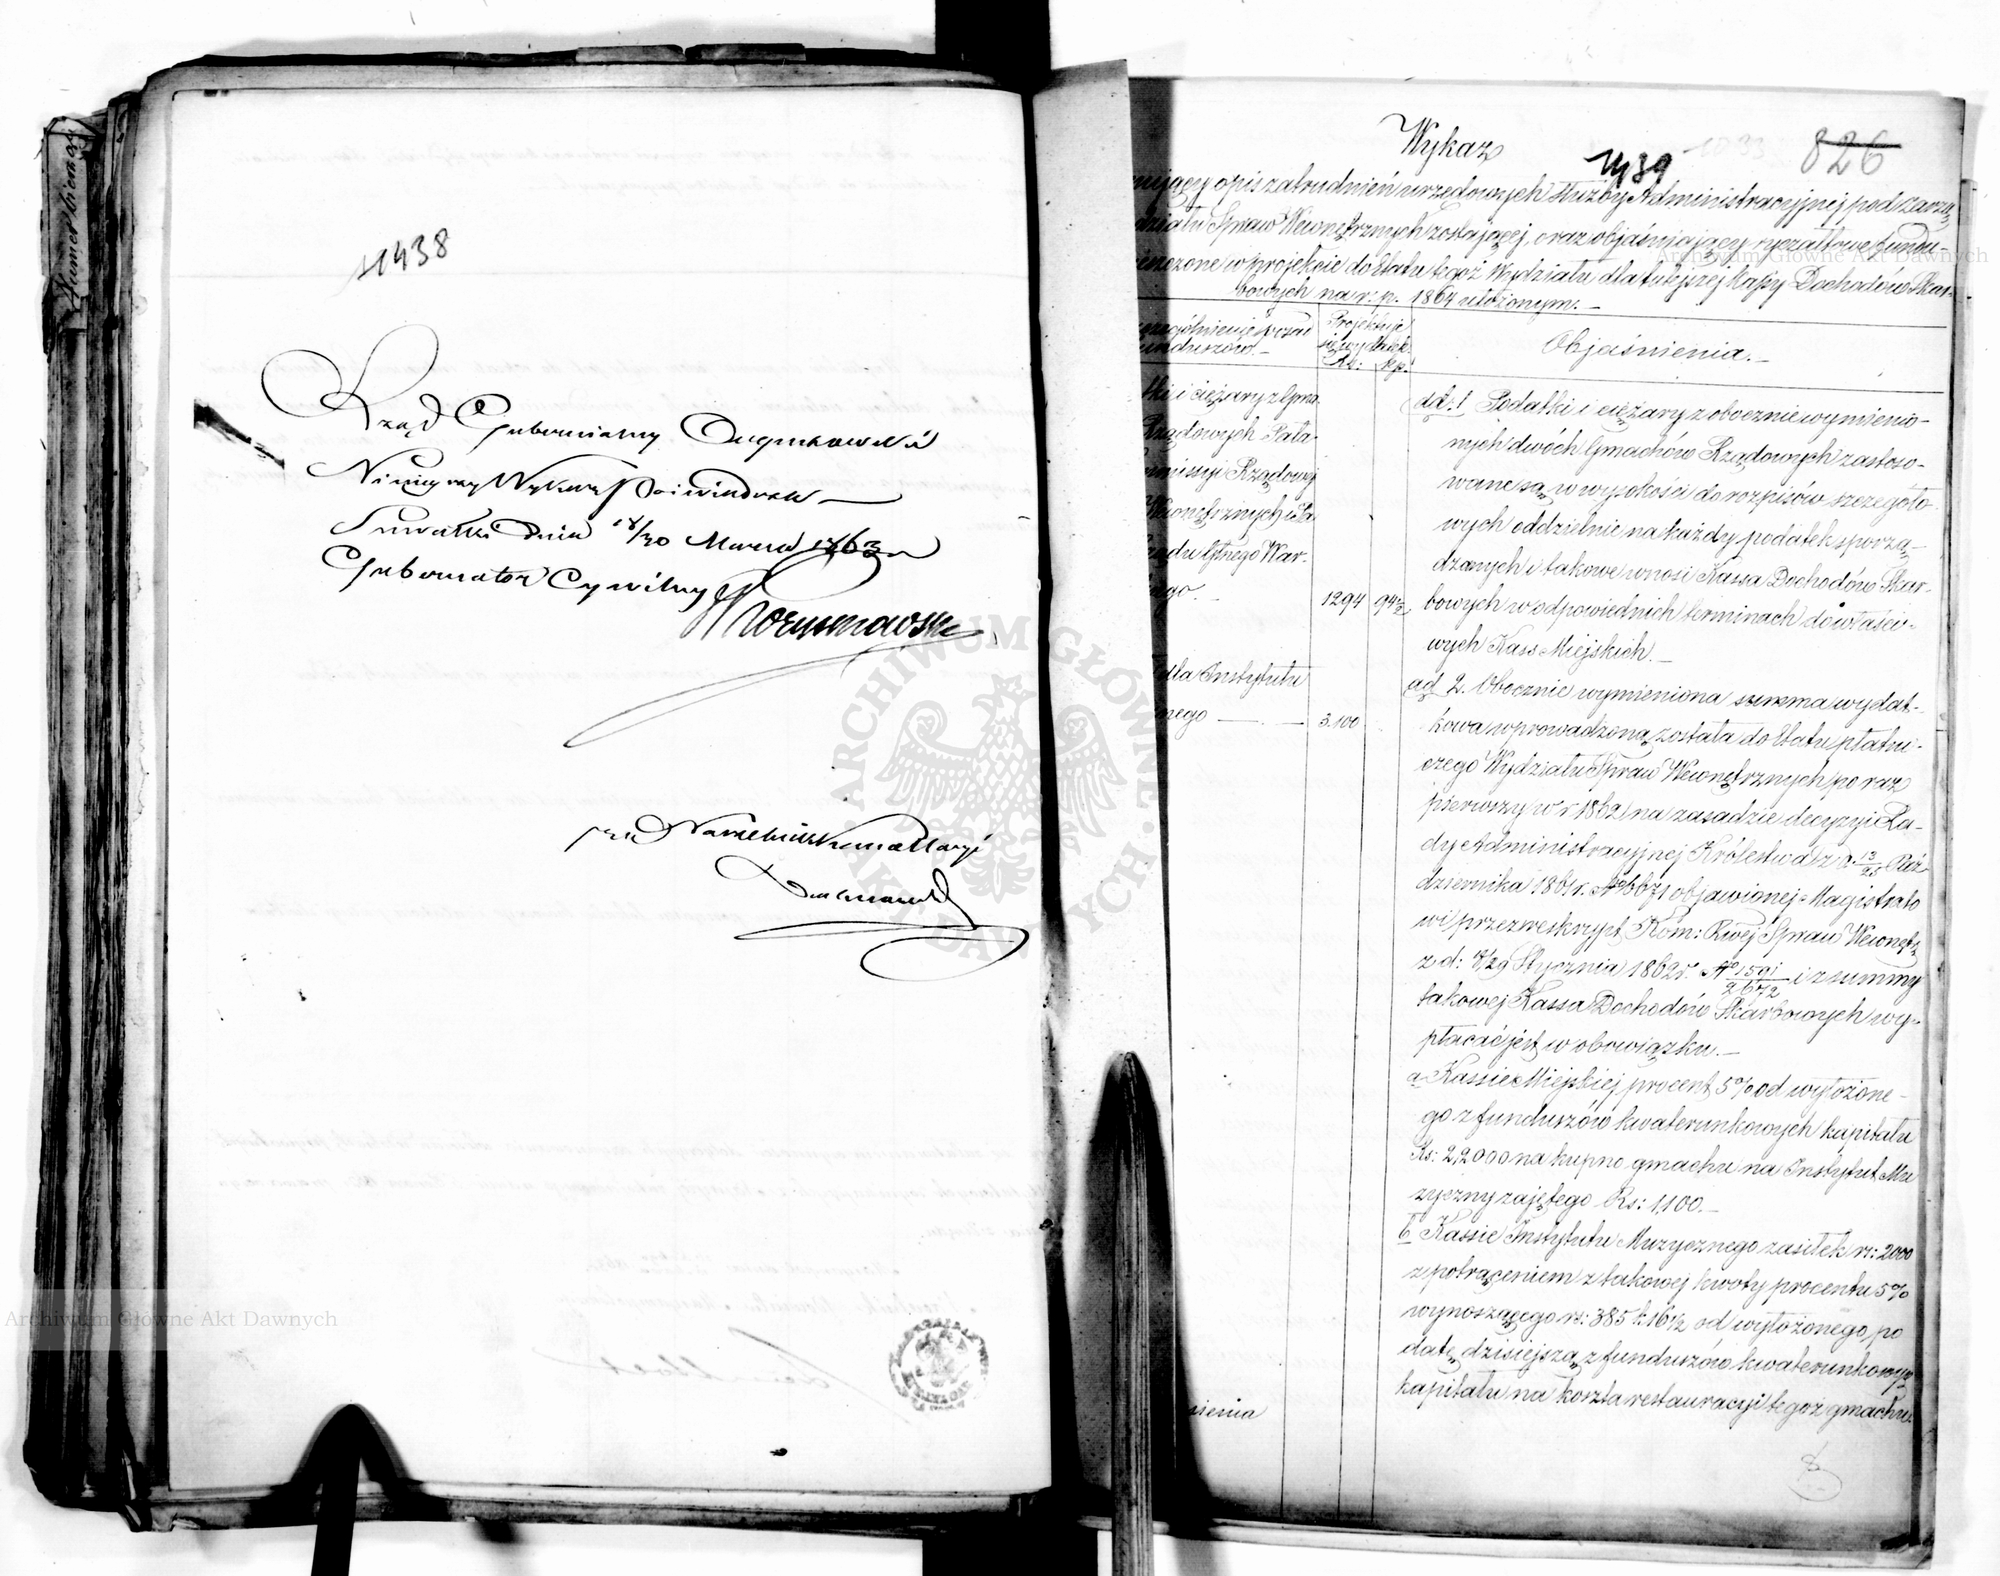 1438
Rząd Gubernialny Augustowski
Niniejszy Wykaz Poświadcza
Suwałki Dnia 18/30 Marca 1863 r
Gubernator Cywilny
Naczelnik Kancellaryi
Archiwum Główne Akt Dawnych
ARCHIWUM GŁÓWNE AKT DAWNYCH
Wykaz
1439
826
mujący opis zatrudnień urzędowych służby Administracyjnej pod zarzą-
działu Spraw Wewnętrznych zostającej, oraz objaśniający ryczałtowe fundu-
eszczone w projekcie do Etatu tegoż Wydziału dla tutejszej Kassy Dochodów Skar-
bowych na r. p. 1864 ułożonym. —
Archiwum Główne Akt Dawnych
zególnienie posad
funduszów. —
Projektuje
się wydatek
Rs: kp:
Objaśnienia. —
tki i ciężary z Gma-
Rządowych Pała-
ommissyi Rządowej
Wewnętrznych i Pa-
ządu Gtnego War-
ego. — 1294 94½
dla Instytutu
nego — 3100
ad. 1 Podatki i ciężary z obocznie wymienio-
nych dwóch Gmachów Rządowych zastoso-
wane są w wysokości do rozpisów szczegóło-
wych oddzielnie na każdy podatek sporzą-
dzanych i takowe wnosi Kassa Dochodów Skar-
bowych w odpowiednich terminach do właści-
wych Kass Miejskich. —
ad 2. Obocznie wymieniona summa wydat-
kowa wprowadzoną została do Etatu płatni-
czego Wydziału Spraw Wewnętrznych po raz
pierwszy w r 1862 na zasadzie decyzyi Ra-
dy Administracyjnej Królestwa z d. 13/25 Paź-
dziernika 1861 r. No 6671 objawionej Magistrato-
wi przez reskrypt Kom: Rwej Spraw Wewnętrz
z d: 17/29 Stycznia 1862 r. No 1591/2672 i z summy
takowej Kassa Dochodów Skarbowych wy-
płacać jest w obowiązku. —
a Kassie Miejskiej procent 5% od wyłożone-
go z funduszów kwaterunkowych kapitału
Rs: 22000 na kupno gmachu na Instytut Mu
zyczny zajętego Rs: 1,100. —
b Kassie Instytutu Muzycznego zasiłek rs: 2000
z potrąceniem z takowej kwoty procentu 5%
wynoszącego rs: 385 k: 16½ od wyłożonego po
datę dzisiejszą z funduszów kwaterunkowych
kapitału na koszta restauracyi tegoż gmachu
sienia